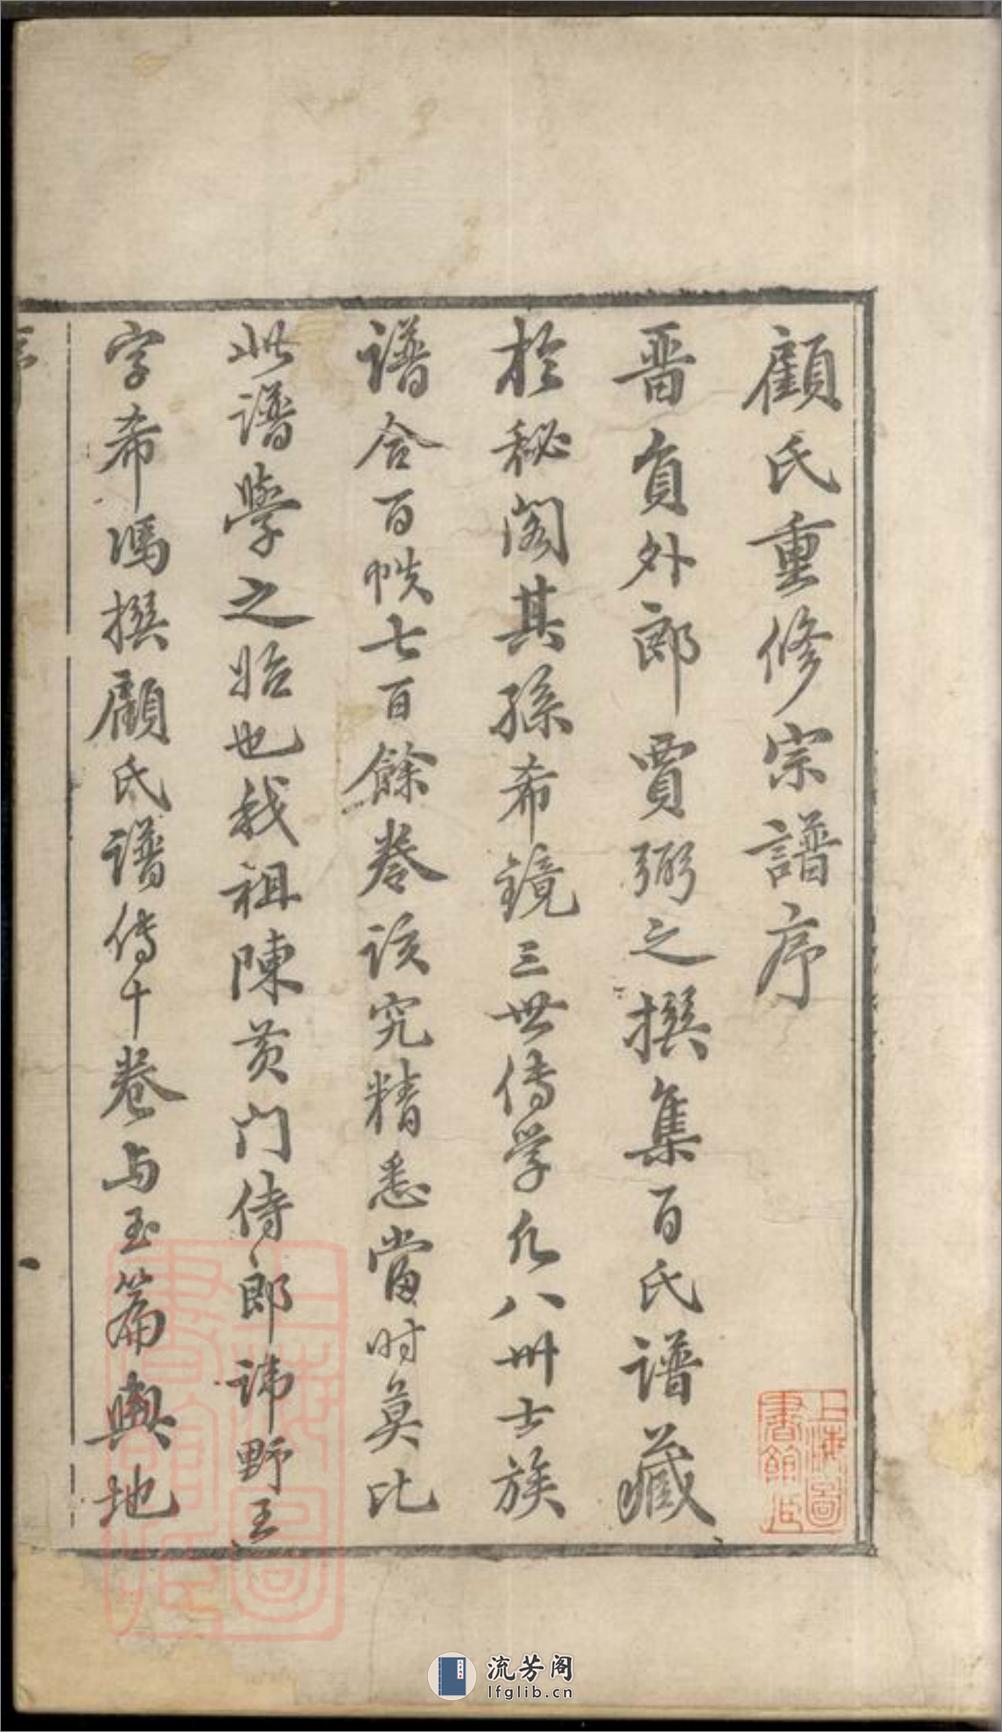 顧氏重修宗譜序
晋負外郎賈弼之撰集百氏譜藏
於秘閣其孫希鏡三世傳学凡八卅士族
譜合百帙七百餘卷該究精悉當时莫比
此譜學之始也我祖陳黃門侍郎諱野王
字希馮撰顧氏譜傳十卷与玉篇輿地
上海圖書館藏
上海圖書館藏
流芳阁
lfglib.cn